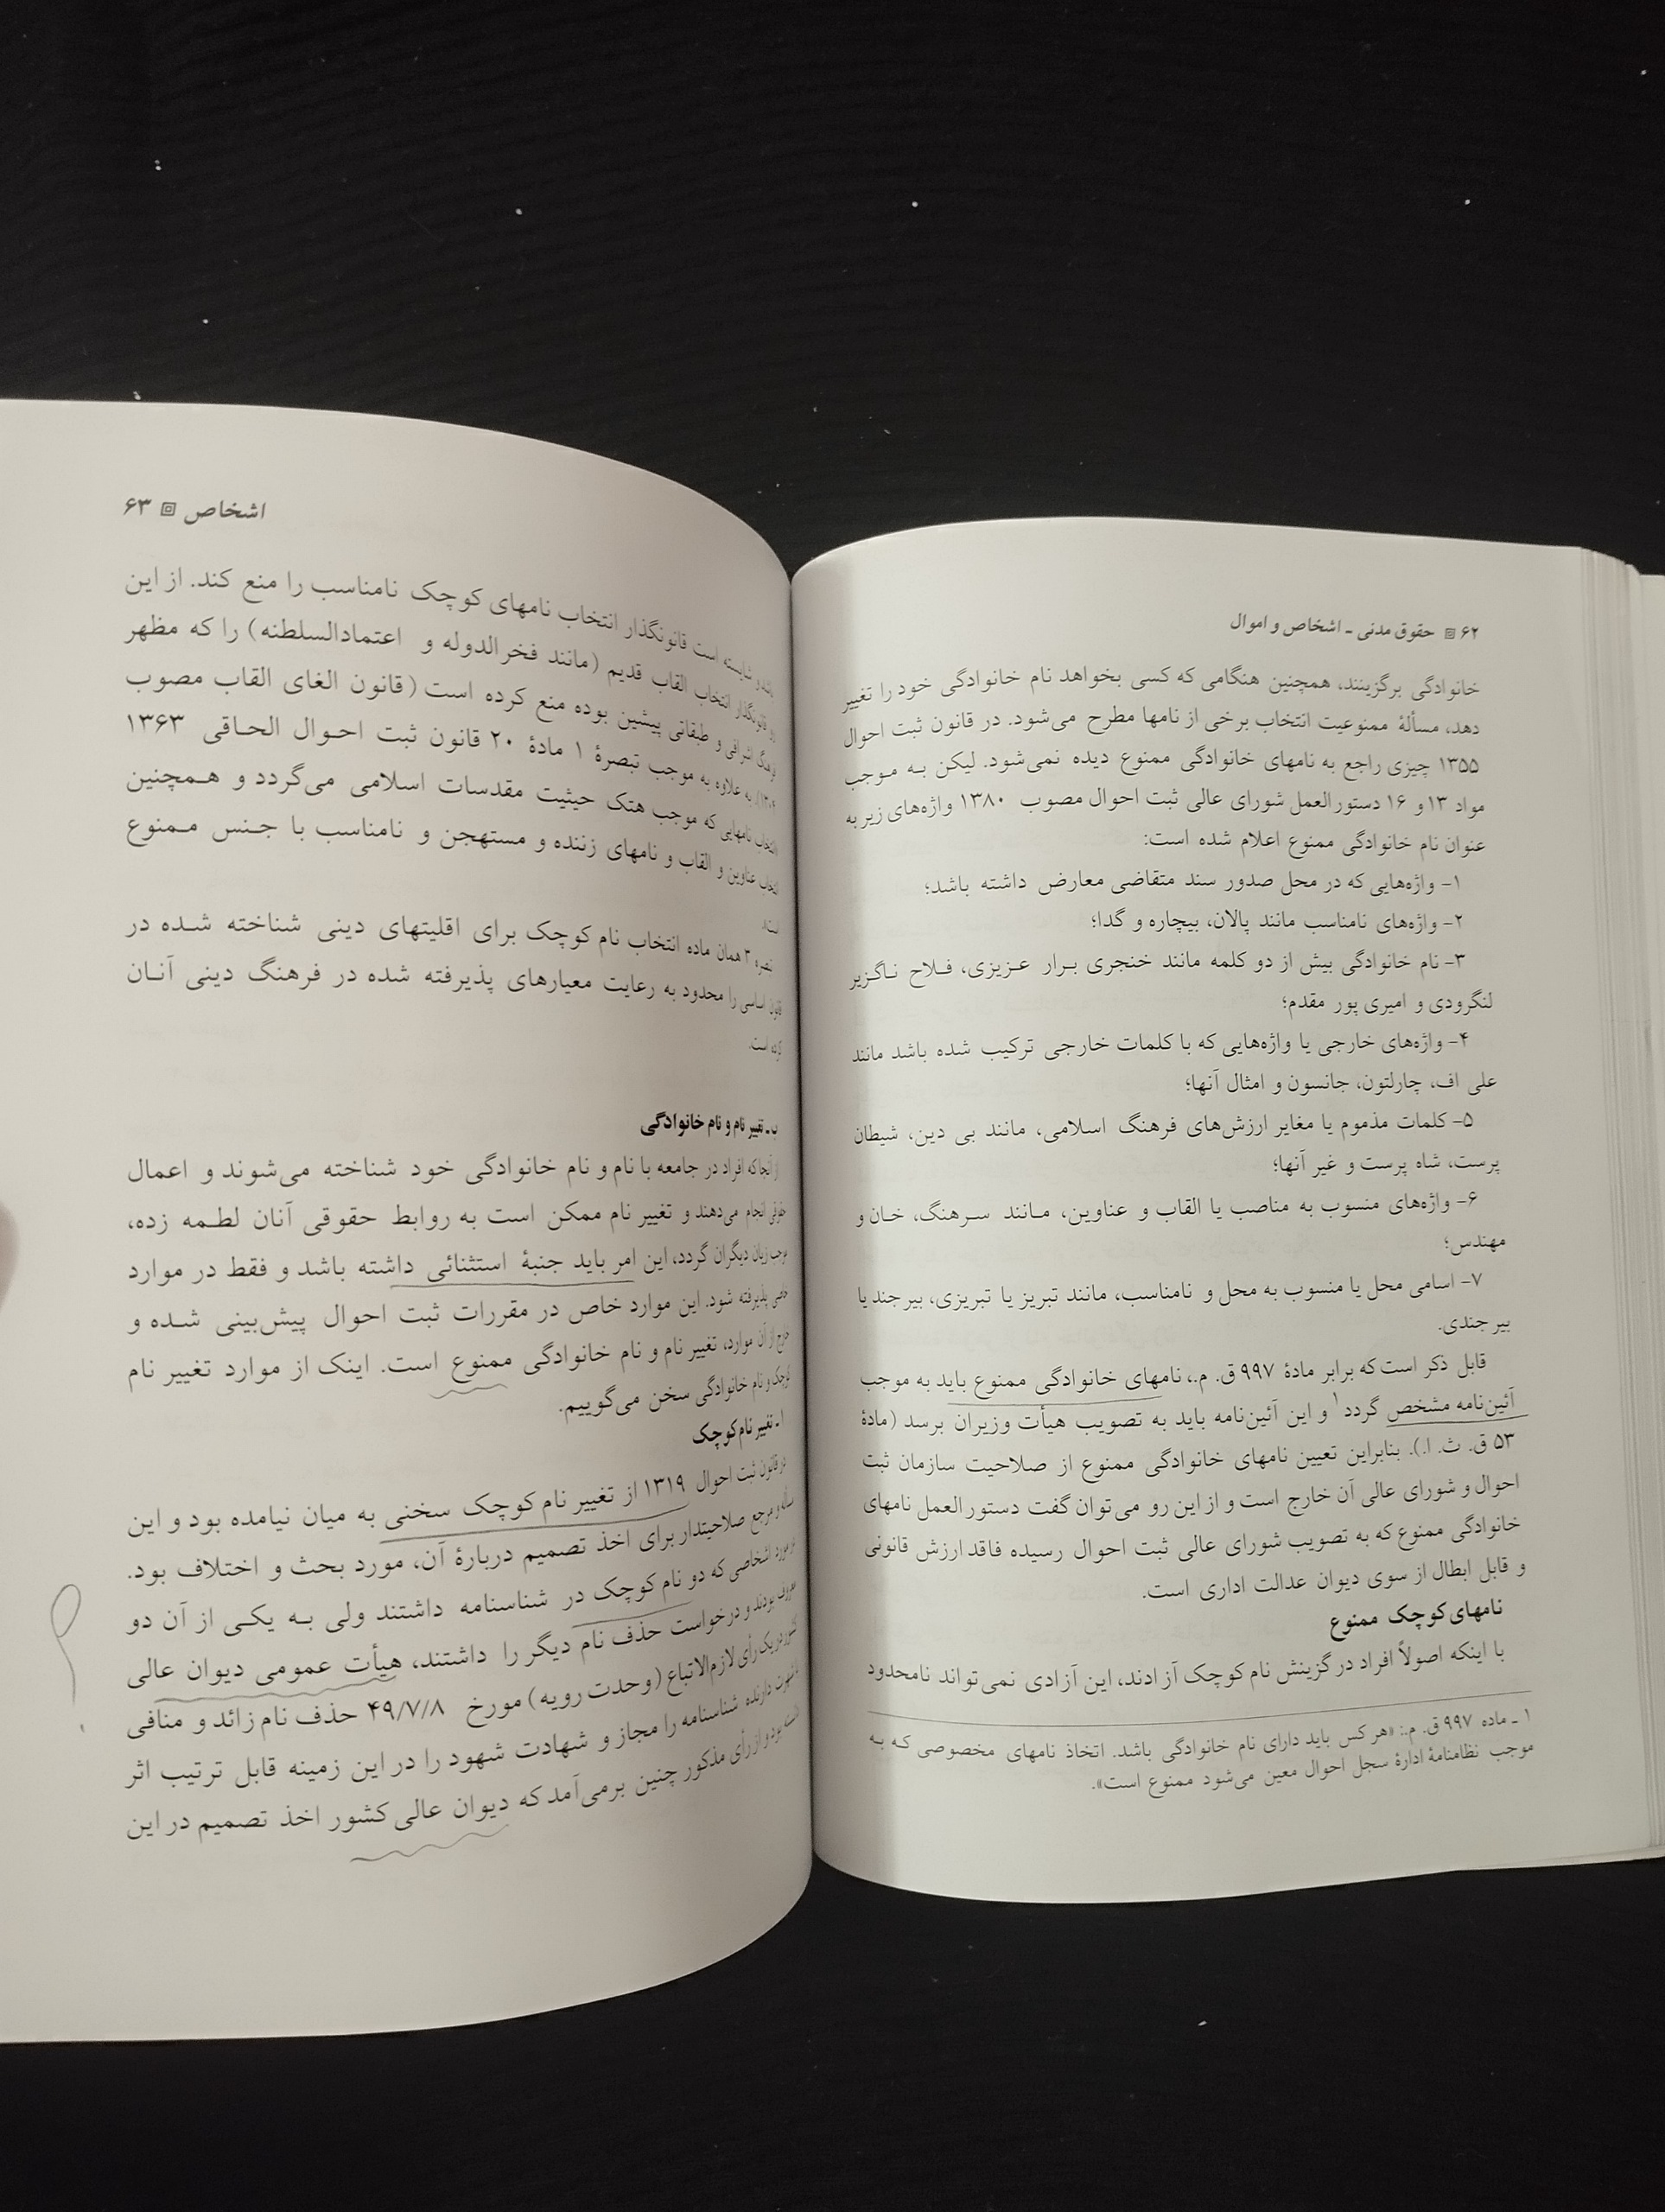 ۶۲ حقوق مدنی ـ اشخاص و اموال
خانوادگی برگزینند، همچنین هنگامی که کسی بخواهد نام خانوادگی خود را تغییر
دهد، مسألهٔ ممنوعیت انتخاب برخی از نامها مطرح می‌شود. در قانون ثبت احوال
۱۳۵۵ چیزی راجع به نامهای خانوادگی ممنوع دیده نمی‌شود. لیکن بـه مـوجب
مواد ۱۳ و ۱۶ دستورالعمل شورای عالی ثبت احوال مصوب ۱۳۸۰ واژه‌های زیر به
عنوان نام خانوادگی ممنوع اعلام شده است:
۱- واژه‌هایی که در محل صدور سند متقاضی معارض داشته باشد؛
۲- واژه‌های نامناسب مانند پالان، بیچاره و گدا؛
۳- نام خانوادگی بیش از دو کلمه مانند خنجری بـرار عـزیزی، فـلاح نـاگـزیر
لنگرودی و امیری پور مقدم؛
۴- واژه‌های خارجی یا واژه‌هایی که با کلمات خارجی ترکیب شده باشد مانند
علی اف، چارلتون، جانسون و امثال آنها؛
۵- کلمات مذموم یا مغایر ارزش‌های فرهنگ اسلامی، مانند بی دین، شیطان
پرست، شاه پرست و غیر آنها؛
۶- واژه‌های منسوب به مناصب یا القاب و عناوین، مـانند سـرهنگ، خـان و
مهندس؛
۷- اسامی محل یا منسوب به محل و نامناسب، مانند تبریز یا تبریزی، بیرجند یا
بیرجندی.
قابل ذکر است که برابر مادهٔ ۹۹۷ ق. م.، نامهای خانوادگی ممنوع باید به موجب
آئین‌نامه مشخص گردد۱ و این آئین‌نامه باید به تصویب هیأت وزیران برسد (مادهٔ
۵۳ ق. ث. ا.). بنابراین تعیین نامهای خانوادگی ممنوع از صلاحیت سازمان ثبت
احوال و شورای عالی آن خارج است و از این رو می‌توان گفت دستورالعمل نامهای
خانوادگی ممنوع که به تصویب شورای عالی ثبت احوال رسیده فاقد ارزش قانونی
و قابل ابطال از سوی دیوان عدالت اداری است.
نامهای کوچک ممنوع
با اینکه اصولاً افراد در گزینش نام کوچک آزادند، این آزادی نمی‌تواند نامحدود
۱ ـ ماده ۹۹۷ ق. م.: «هر کس باید دارای نام خانوادگی باشد. اتخاذ نامهای مخصوصی کـه بـه
موجب نظامنامهٔ ادارهٔ سجل احوال معین می‌شود ممنوع است».
اشخاص ۶۳
باشد و شایسته است قانونگذار انتخاب نامهای کوچک نامناسب را منع کند. از این
رو قانونگذار انتخاب القاب قدیم (مانند فخرالدوله و اعتمادالسلطنه) را که مظهر
فرهنگ اشرافی و طبقاتی پیشین بوده منع کرده است (قانون الغای القاب مصوب
به علاوه به موجب تبصرهٔ ۱ مادهٔ ۲۰ قانون ثبت احـوال الحـاقی ۱۳۶۳
انتخاب نامهایی که موجب هتک حیثیت مقدسات اسلامی می‌گردد و هـمچنین
انتخاب عناوین و القاب و نامهای زننده و مستهجن و نامناسب با جـنس مـمنوع
است.
تبصره ۳ همان ماده انتخاب نام کوچک برای اقلیتهای دینی شناخته شـده در
قانون اساسی را محدود به رعایت معیارهای پذیرفته شده در فرهنگ دینی آنـان
کرده است.
ب ـ تغییر نام و نام خانوادگی
از آنجا که افراد در جامعه با نام و نام خانوادگی خود شناخته می‌شوند و اعمال
حقوقی انجام می‌دهند و تغییر نام ممکن است به روابط حقوقی آنان لطـمه زده،
موجب زیان دیگران گردد، این امر باید جنبهٔ استثنائی داشته باشد و فقط در موارد
خاصی پذیرفته شود. این موارد خاص در مقررات ثبت احوال پیش‌بینی شـده و
خارج از آن موارد، تغییر نام و نام خانوادگی ممنوع است. اینک از موارد تغییر نام
کوچک و نام خانوادگی سخن می‌گوییم.
۱ ـ تغییر نام کوچک
در قانون ثبت احوال ۱۳۱۹ از تغییر نام کوچک سخنی به میان نیامده بود و این
مسأله و مرجع صلاحیتدار برای اخذ تصمیم دربارهٔ آن، مورد بحث و اختلاف بود.
در مورد اشخاصی که دو نام کوچک در شناسنامه داشتند ولی بـه یکـی از آن دو
معروف بودند و درخواست حذف نام دیگر را داشتند، هیأت عمومی دیوان عالی
کشور در یک رأی لازم‌الاتباع (وحدت رویه) مورخ ۴۹/۷/۸ حذف نام زائد و منافی
با شهرت دارنده شناسنامه را مجاز و شهادت شهود را در این زمینه قابل ترتیب اثر
دانسته بود و از رأی مذکور چنین برمی‌آمد که دیوان عالی کشور اخذ تصمیم در این